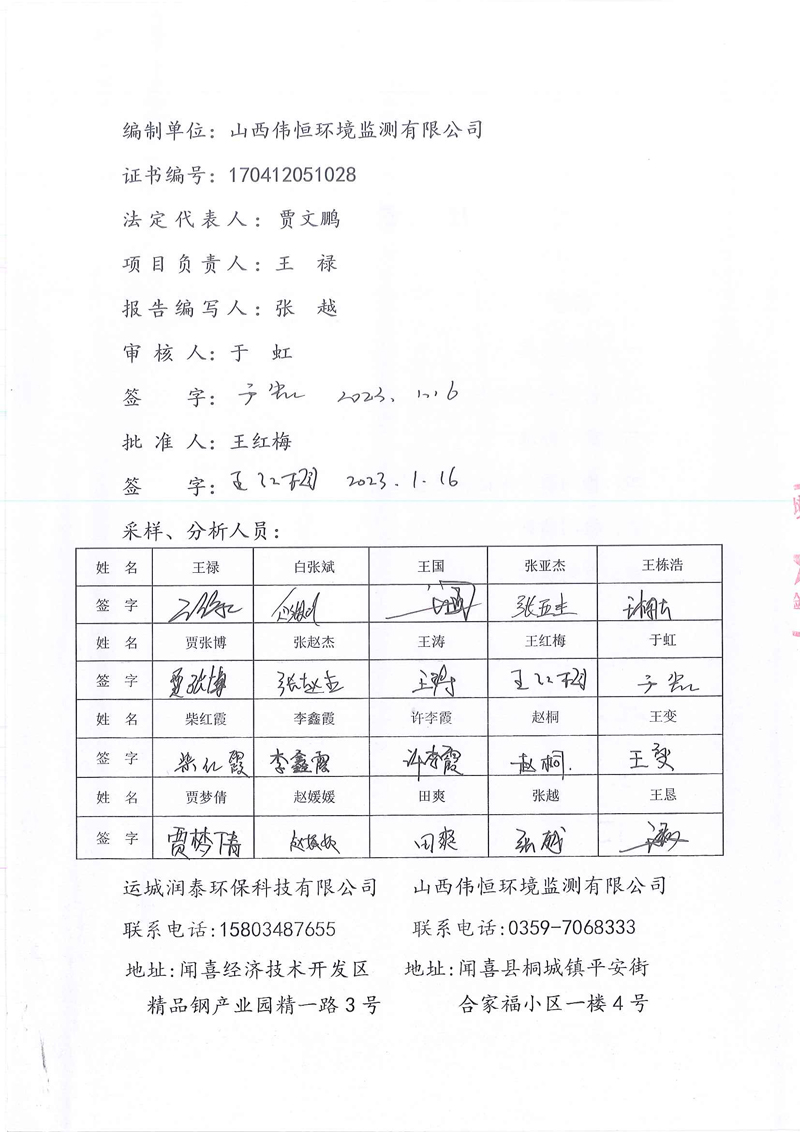 编制单位：山西伟恒环境监测有限公司
证书编号：170412051028
法定代表人：贾文鹏
项目负责人：王 禄
报告编写人：张 越
审 核 人：于 虹
签 字：于虹 2023.1.16
批 准 人：王红梅
签 字：王红梅 2023.1.16
采样、分析人员：
姓 名 王禄 白张斌 王国 张亚杰 王栋浩
签 字 张亚杰
姓 名 贾张博 张赵杰 王涛 王红梅 于虹
签 字 贾张博 张赵杰 王涛 王红梅 于虹
姓 名 柴红霞 李鑫霞 许李霞 赵桐 王变
签 字 柴红霞 李鑫霞 许李霞 赵桐. 王变
姓 名 贾梦倩 赵媛媛 田爽 张越 王恳
签 字 贾梦倩 赵媛媛 田爽 张越
运城润泰环保科技有限公司 山西伟恒环境监测有限公司
联系电话:15803487655 联系电话:0359-7068333
地址:闻喜经济技术开发区 地址:闻喜县桐城镇平安街
精品钢产业园精一路 3 号 合家福小区一楼 4 号